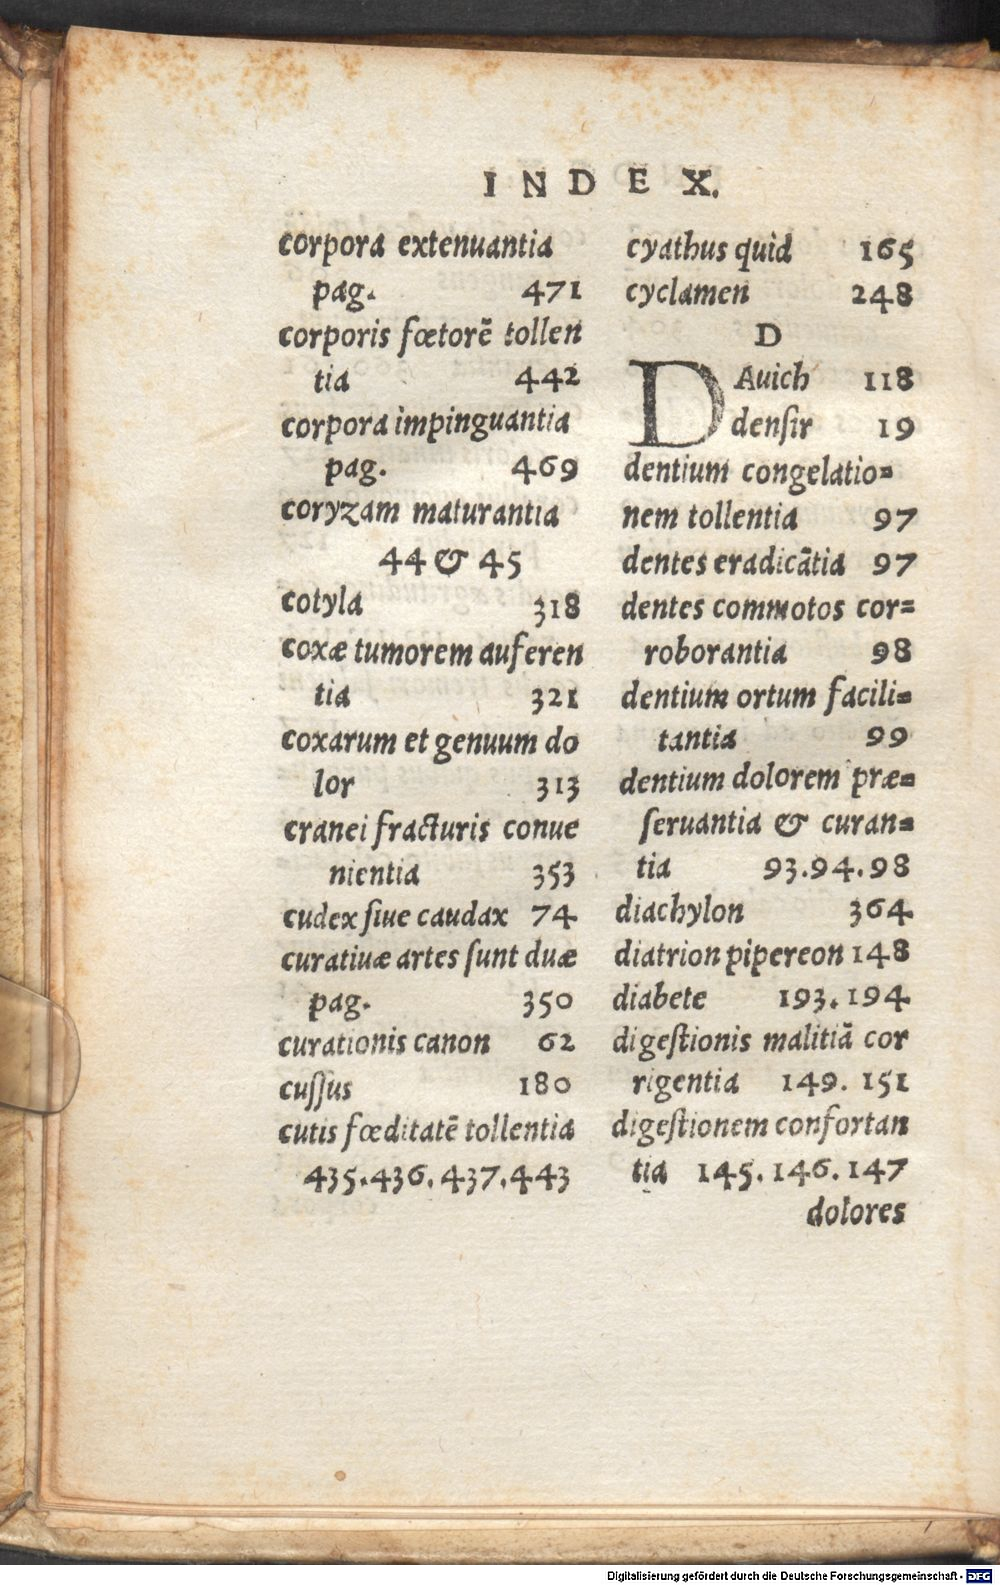 INDEX.
corpora extenuantia
pag. 471
corporis fœtorē tollen
tia 442
corpora impinguantia
pag. 469
coryzam maturantia
44 & 45
cotyla 318
coxæ tumorem auferen
tia 321
coxarum et genuum do
lor 313
cranei fracturis conue
nientia 353
cudex ſiue caudax 74
curatiuæ artes ſunt duæ
pag. 350
curationis canon 62
cuſſus 180
cutis fœditatē tollentia
435.436.437.443
cyathus quid 165
cyclamen 248
D
DAuich 118
denſir 19
dentium congelatio=
nem tollentia 97
dentes eradicātia 97
dentes commotos cor=
roborantia 98
dentium ortum facili=
tantia 99
dentium dolorem præ=
ſeruantia & curan=
tia 93.94.98
diachylon 364
diatrion pipereon 148
diabete 193.194
digeſtionis malitiā cor
rigentia 149. 151
digeſtionem confortan
tia 145.146.147
dolores
Digitalisierung gefördert durch die Deutsche Forschungsgemeinschaft - DFG